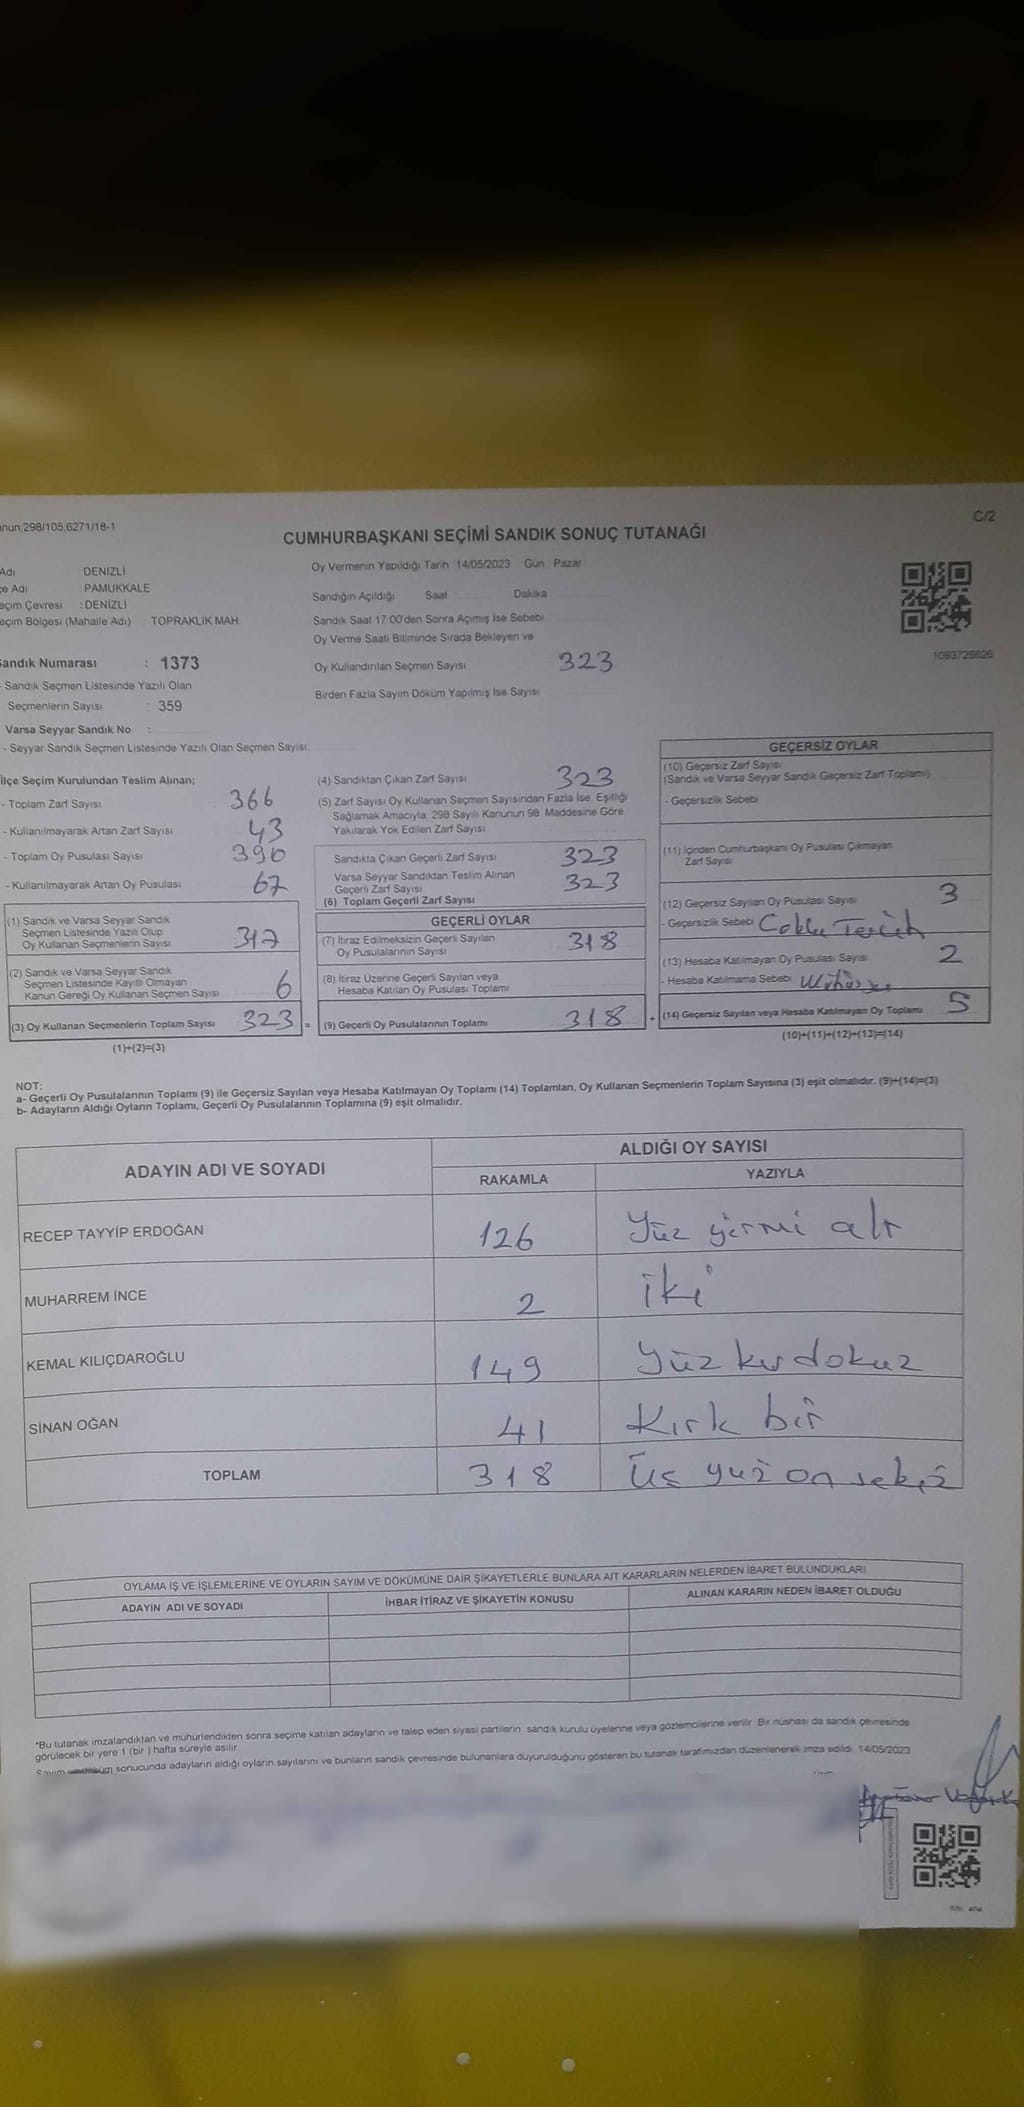 nun;298/105,6271/18-1
C/2
CUMHURBAŞKANI SEÇİMİ SANDIK SONUÇ TUTANAĞI
Adı DENİZLİ
çe Adı : PAMUKKALE
eçim Çevresi : DENİZLİ
eçim Bölgesi (Mahalle Adı) : TOPRAKLIK MAH
andık Numarası : 1373
- Sandık Seçmen Listesinde Yazılı Olan
Seçmenlerin Sayısı : 359
Varsa Seyyar Sandık No :
- Seyyar Sandık Seçmen Listesinde Yazılı Olan Seçmen Sayısı:
Oy Vermenin Yapıldığı Tarih 14/05/2023 Gün : Pazar
Sandığın Açıldığı Saat Dakika
Sandık Saat 17:00'den Sonra Açımış İse Sebebi
Oy Verme Saati Bitiminde Sırada Bekleyen ve
Oy Kullandırılan Seçmen Sayısı 323
Birden Fazla Sayım Döküm Yapılmış İse Sayısı
1093726626
İlçe Seçim Kurulundan Teslim Alınan;
- Toplam Zarf Sayısı 366
- Kullanılmayarak Artan Zarf Sayısı 43
- Toplam Oy Pusulası Sayısı 390
- Kullanılmayarak Artan Oy Pusulası 67
(1) Sandık ve Varsa Seyyar Sandık
Seçmen Listesinde Yazılı Olup
Oy Kullanan Seçmenlerin Sayısı 317
(2) Sandık ve Varsa Seyyar Sandık
Seçmen Listesinde Kayıtlı Olmayan
Kanun Gereği Oy Kullanan Seçmen Sayısı 6
(3) Oy Kullanan Seçmenlerin Toplam Sayısı 323 =
(1)+(2)=(3)
(4) Sandıktan Çıkan Zarf Sayısı 323
(5) Zarf Sayısı Oy Kullanan Seçmen Sayısından Fazla İse, Eşitliği
Sağlamak Amacıyla, 298 Sayılı Kanunun 98. Maddesine Göre
Yakılarak Yok Edilen Zarf Sayısı
Sandıkta Çıkan Geçerli Zarf Sayısı 323
Varsa Seyyar Sandıktan Teslim Alınan
Geçerli Zarf Sayısı 323
(6) Toplam Geçerli Zarf Sayısı
GEÇERLİ OYLAR
(7) İtiraz Edilmeksizin Geçerli Sayılan
Oy Pusulalarının Sayısı 318
(8) İtiraz Üzerine Geçerli Sayılan veya
Hesaba Katılan Oy Pusulası Toplamı
(9) Geçerli Oy Pusulalarının Toplamı 318 +
GEÇERSİZ OYLAR
(10) Geçersiz Zarf Sayısı
(Sandık ve Varsa Seyyar Sandık Geçersiz Zarf Toplamı)
- Geçersizlik Sebebi
(11) İçinden Cumhurbaşkanı Oy Pusulası Çıkmayan
Zarf Sayısı
(12) Geçersiz Sayılan Oy Pusulası Sayısı 3
- Geçersizlik Sebebi Çoklu Tercih
(13) Hesaba Katılmayan Oy Pusulası Sayısı 2
- Hesaba Katılmama Sebebi
(14) Geçersiz Sayılan veya Hesaba Katılmayan Oy Toplamı 5
(10)+(11)+(12)+(13)=(14)
NOT:
a- Geçerli Oy Pusulalarının Toplamı (9) ile Geçersiz Sayılan veya Hesaba Katılmayan Oy Toplamı (14) Toplamları, Oy Kullanan Seçmenlerin Toplam Sayısına (3) eşit olmalıdır. (9)+(14)=(3)
b- Adayların Aldığı Oyların Toplamı, Geçerli Oy Pusulalarının Toplamına (9) eşit olmalıdır.
ADAYIN ADI VE SOYADI ALDIĞI OY SAYISI
RAKAMLA YAZIYLA
RECEP TAYYİP ERDOĞAN 126 Yüz yirmi altı
MUHARREM İNCE 2 İki
KEMAL KILIÇDAROĞLU 149 Yüz kırk dokuz
SİNAN OĞAN 41 Kırk bir
TOPLAM 318 Üç yüz on sekiz
OYLAMA İŞ VE İŞLEMLERİNE VE OYLARIN SAYIM VE DÖKÜMÜNE DAİR ŞİKAYETLERLE BUNLARA AİT KARARLARIN NELERDEN İBARET BULUNDUKLARI
ADAYIN ADI VE SOYADI İHBAR İTİRAZ VE ŞİKAYETİN KONUSU ALINAN KARARIN NEDEN İBARET OLDUĞU
*Bu tutanak imzalandıktan ve mühürlendikten sonra seçime katılan adayların ve talep eden siyasi partilerin sandık kurulu üyelerine veya gözlemcilerine verilir. Bir nüshası da sandık çevresinde
görülecek bir yere 1 (bir ) hafta süreyle asılır.
Sayım sonucunda adayların aldığı oyların sayılarını ve bunların sandık çevresinde bulunanlara duyurulduğunu gösteren bu tutanak tarafımızdan düzenlenerek imza edildi. 14/05/2023